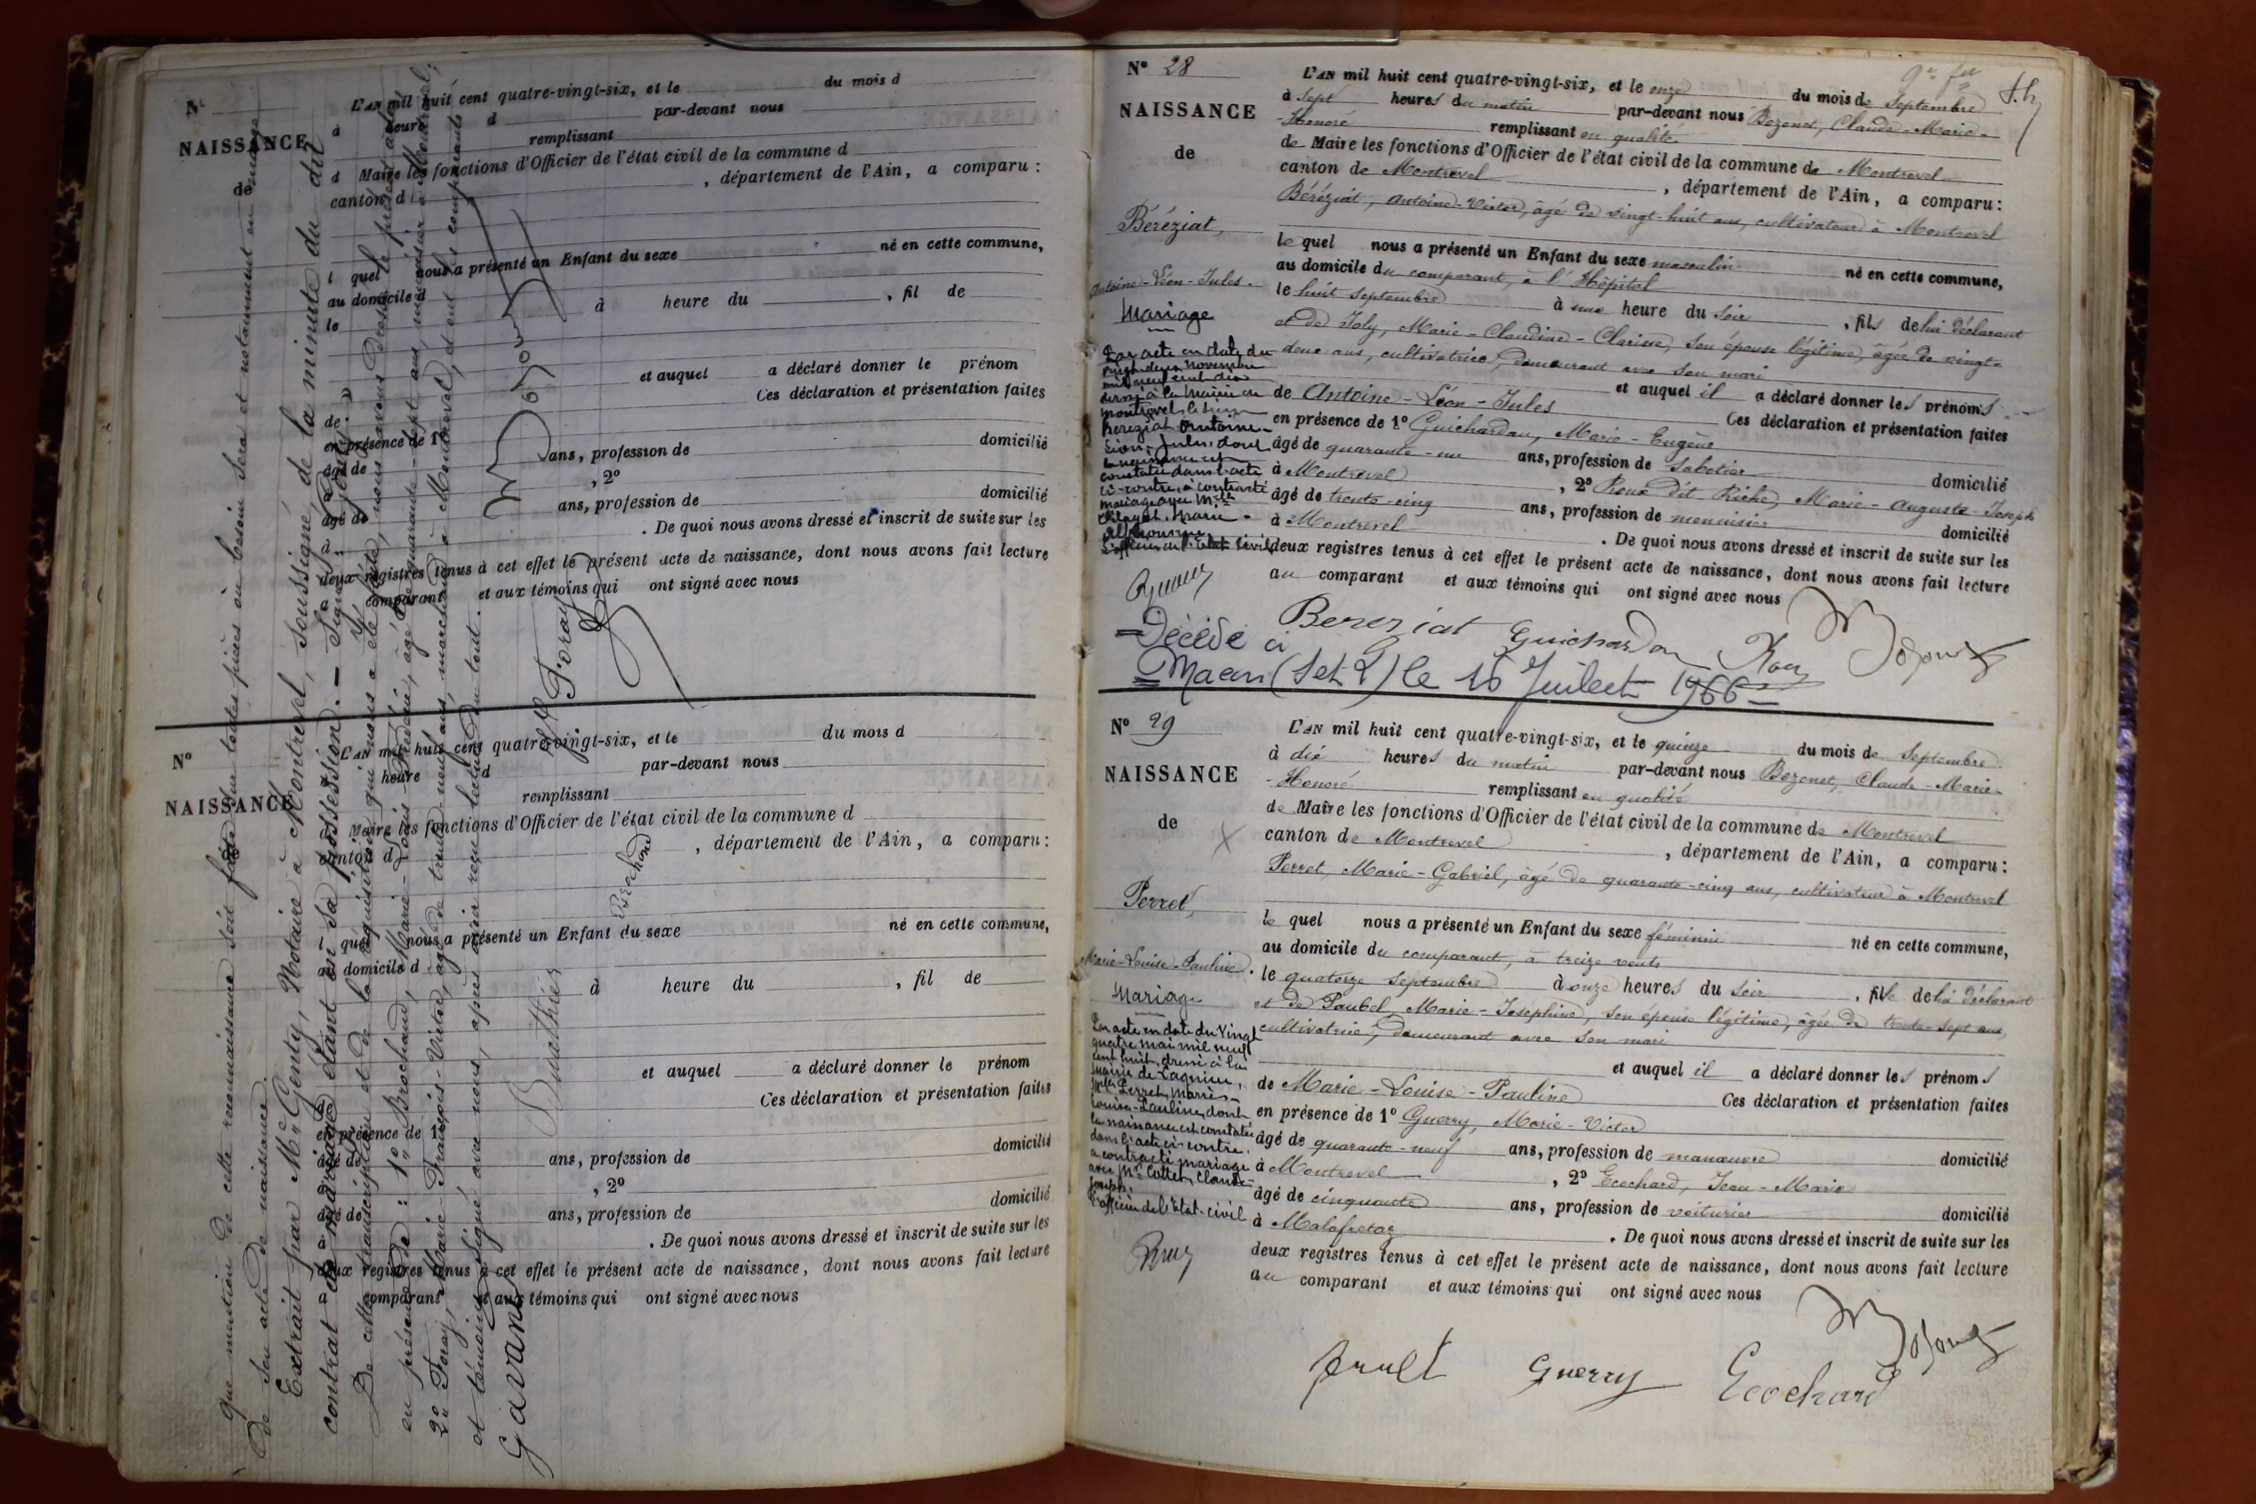 N°
NAISSANCE
de
L'AN mil huit cent quatre-vingt-six, et le du mois d
à heure d par-devant nous
remplissant
d Maire les fonctions d'Officier de l'état civil de la commune d
canton d , département de l'Ain, a comparu :
l quel nous a présenté un Enfant du sexe né en cette commune,
au domicile d
le à heure du , fil de
et auquel a déclaré donner le prénom
de Ces déclaration et présentation faites
en présence de 1°
âgé de ans, profession de domicilié
à , 2°
âgé de ans, profession de domicilié
à . De quoi nous avons dressé et inscrit de suite sur les
deux registres tenus à cet effet le présent acte de naissance, dont nous avons fait lecture
a comparant et aux témoins qui ont signé avec nous
N°
NAISSANCE
de
L'AN mil huit cent quatre-vingt-six, et le du mois d
à heure d par-devant nous
remplissant
d Maire les fonctions d'Officier de l'état civil de la commune d
canton d , département de l'Ain, a comparu :
l quel nous a présenté un Enfant du sexe né en cette commune,
au domicile d
le à heure du , fil de
et auquel a déclaré donner le prénom
de Ces déclaration et présentation faites
en présence de 1°
âgé de ans, profession de domicilié
à , 2°
âgé de ans, profession de domicilié
à . De quoi nous avons dressé et inscrit de suite sur les
deux registres tenus à cet effet le présent acte de naissance, dont nous avons fait lecture
a comparant et aux témoins qui ont signé avec nous
que mention de cette reconnaissance soit faite sur toutes pièces où besoin sera et notamment en marge
de son acte de naissance.
Extrait par Me Genty, Notaire à Montrevel, soussigné, de la minute du dit
contrat de mariage étant en sa possession. — Signé : Genty.
De cette transcription et de la réquisition qui nous a été faite, nous avons dressé le présent acte
en présence de : 1° Brochand, Marie-Louis-Frédéric, âgé de quarante-sept ans, menuisier à Montrevel ;
2° Foray, Marie-François-Victor, âgé de trente-neuf ans, marchand à Montrevel, dont les comparants
et témoins signé avec nous, après avoir reçu lecture du tout.
Gavand Buathier Brochand
Foray
N° 28
NAISSANCE
de
Béréziat,
Antoine-Léon-Jules.
L'AN mil huit cent quatre-vingt-six, et le onze du mois de Septembre
à sept heures du matin par-devant nous Bozonet, Claude-Marie-
Honoré remplissant en qualité
de Maire les fonctions d'Officier de l'état civil de la commune de Montrevel
canton de Montrevel , département de l'Ain, a comparu :
Béréziat, Antoine-Victor, âgé de vingt-huit ans, cultivateur à Montrevel
le quel nous a présenté un Enfant du sexe masculin né en cette commune,
au domicile du comparant, à l'Hôpital
le huit septembre à une heure du soir , fils de lui déclarant
et de Joly, Marie-Claudine-Clarisse, son épouse légitime, âgée de vingt-
deux ans, cultivatrice, demeurant avec son mari
et auquel il a déclaré donner les prénoms
de Antoine-Léon-Jules Ces déclaration et présentation faites
en présence de 1° Guichardon, Marie-Eugène
âgé de quarante-un ans, profession de sabotier domicilié
à Montrevel , 2° Roux dit Riche, Marie-Auguste-Joseph
âgé de trente-cinq ans, profession de menuisier domicilié
à Montrevel . De quoi nous avons dressé et inscrit de suite sur les
deux registres tenus à cet effet le présent acte de naissance, dont nous avons fait lecture
au comparant et aux témoins qui ont signé avec nous
Mariage
Par acte en date du
vingt deux novembre
mil neuf cent dix
dressé à la mairie de
Montrevel, le sieur
Bereziat Antoine-
Léon-Jules, dont
la naissance est
constatée dans l'acte
ci-contre, a contracté
mariage avec Mlle
Marie-
L'officier de l'Etat Civil
Bereziat Guichardon Roux Bozonet
Décédé à
Macon (S-et-L) le 16 Juillet 1966
N° 29
NAISSANCE
de
Perret,
Marie-Louise-Pauline.
L'AN mil huit cent quatre-vingt-six, et le quinze du mois de Septembre
à dix heures du matin par-devant nous Bozonet, Claude-Marie-
Honoré remplissant en qualité
de Maire les fonctions d'Officier de l'état civil de la commune de Montrevel
canton de Montrevel , département de l'Ain, a comparu :
Perret, Marie-Gabriel, âgé de quarante-cinq ans, cultivateur à Montrevel
le quel nous a présenté un Enfant du sexe féminin né en cette commune,
au domicile du comparant, à treize vents
le quatorze septembre à onze heures du soir , fille de lui déclarant
et de Paubel, Marie-Joséphine, son épouse légitime, âgée de trente-sept ans,
cultivatrice, demeurant avec son mari
et auquel il a déclaré donner les prénoms
de Marie-Louise-Pauline Ces déclaration et présentation faites
en présence de 1° Guerry, Marie-Victor
âgé de quarante-neuf ans, profession de manœuvre domicilié
à Montrevel , 2° Ecochard, Jean-Marie
âgé de cinquante ans, profession de voiturier domicilié
à Malafretaz . De quoi nous avons dressé et inscrit de suite sur les
deux registres tenus à cet effet le présent acte de naissance, dont nous avons fait lecture
au comparant et aux témoins qui ont signé avec nous
Mariage
Par acte en date du vingt
quatre mai mil neuf
cent huit, dressé à la
mairie de Lagnieu,
Mlle Perret, Marie-
Louise-Pauline, dont
la naissance est constatée
dans l'acte ci-contre,
a contracté mariage
avec Mr Cottet, Claude-
Joseph.
L'officier de l'Etat-civil
Perret Guerry Ecochard Bozonet